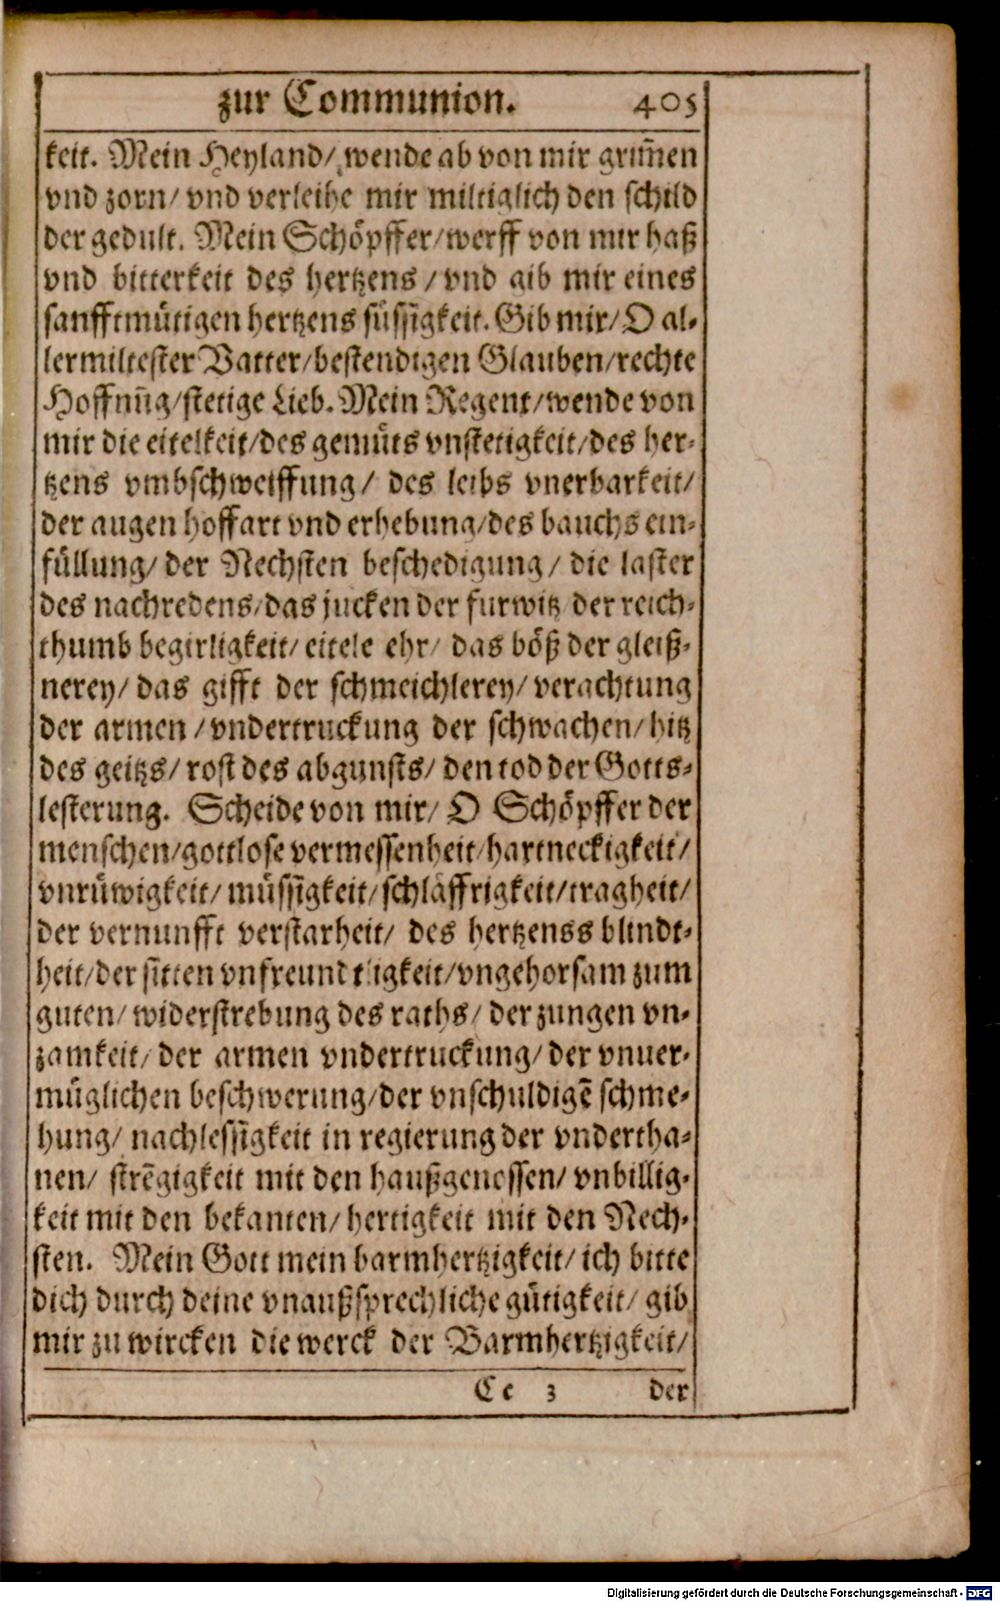 zur Communion. 405
keit. Mein Heyland/ wende ab von mir grim̃en
vnd zorn/ vnd verleihe mir miltiglich den schild
der gedult. Mein Schöpffer/ werff von mir haß
vnd bitterkeit des hertzens / vnd gib mir eines
sanfftmütigen hertzens süssigkeit. Gib mir/ O al-
lermiltester Vatter/ bestendigen Glauben/ rechte
Hoffnũg/ stetige Lieb. Mein Regent/ wende von
mir die eitelkeit/ des gemüts vnstetigkeit/ des her-
tzens vmbschweiffung/ des leibs vnerbarkeit/
der augen hoffart vnd erhebung/ des bauchs ein-
füllung/ der Nechsten beschedigung / die laster
des nachredens/ das jucken der furwitz der reich-
thumb begirligkeit/ eitele ehr/ das böß der gleiß-
nerey/ das gifft der schmeichlerey/ verachtung
der armen / vndertruckung der schwachen/ hitz
des geitzs/ rost des abgunsts/ den tod der Gotts-
lesterung. Scheide von mir/ O Schöpffer der
menschen/ gottlose vermessenheit/ hartneckigkeit/
vnrüwigkeit/ müssigkeit/ schläffrigkeit/ tragheit/
der vernunfft verstarheit/ des hertzenss blindt-
heit/ der sitten vnfreundtligkeit/ vngehorsam zum
guten/ widerstrebung des raths/ der zungen vn-
zamkeit/ der armen vndertruckung/ der vnuer-
müglichen beschwerung/ der vnschuldigẽ schme-
hung/ nachlessigkeit in regierung der vndertha-
nen/ strẽgigkeit mit den haußgenossen/ vnbillig-
keit mit den bekanten/ hertigkeit mit den Nech-
sten. Mein Gott mein barmhertzigkeit/ ich bitte
dich durch deine vnaußsprechliche gütigkeit/ gib
mir zu wircken die werck der Barmhertzigkeit/
Cc 3 der
Digitalisierung gefördert durch die Deutsche Forschungsgemeinschaft - DFG